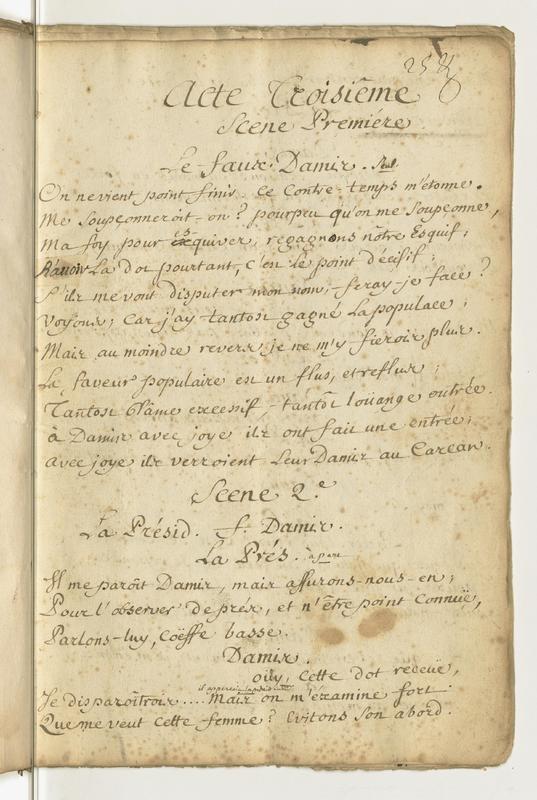 Acte Troisiême
Scene Premiére
Le faux Damis. seul
On ne vient point finir. Ce Contre-temps m'étonne.
Me Soupçonneroit-on? pour peu qu'on me Soupçonne,
Ma foy pour esquiver, regagnons nôtre Esquif;
Ravoir La dot pourtant, c'est le point décisif;
S'ils me vont disputer mon nom, feray-je face?
Voyons; Car j'ay tantost gagné La populace;
Mais au moindre revers je ne m'y fierois plus.
La faveur populaire est un flus, et reflus;
Tantost blâme excessif, tantôt loüange outrée.
à Damis avec joye ils ont fait une entrée;
avec joye ils verroient Leur Damis au Carcan.
Scene 2.e
La Présid. f. Damis.
La Prés. à part
Il me paroît Damis, mais assurons-nous-en;
Pour l'observer de prés, et n'être point Connuë,
Parlons-luy, Coëffe basse.
Damis.
oüy, Cette dot receüe,
il apperçoit la présid.
Je disparoîtrois .... Mais on m'examine fort
Que me veut Cette femme? Evitons Son abord.